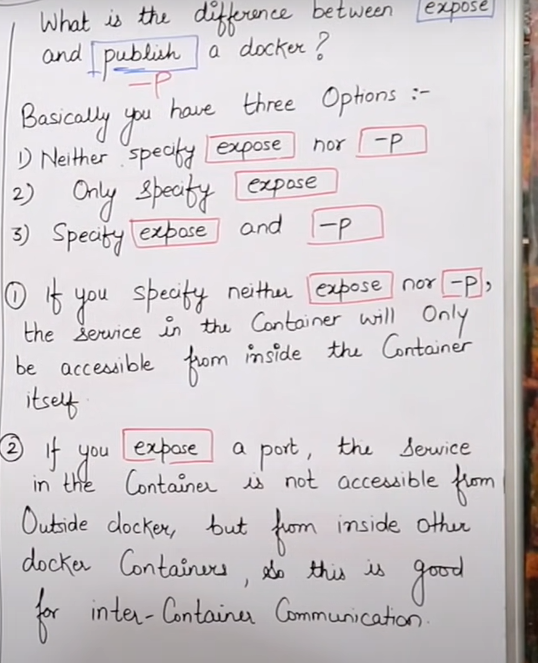 What is the difference between expose
and publish a docker?
-P
Basically you have three Options :-
1) Neither specify expose nor -P
2) Only specify expose
3) Specify expose and -P
① If you specify neither expose nor -P,
the service in the Container will Only
be accessible from inside the Container
itself.
② If you expose a port, the service
in the Container is not accessible from
Outside docker, but from inside other
docker Containers, so this is good
for inter-Container Communication.